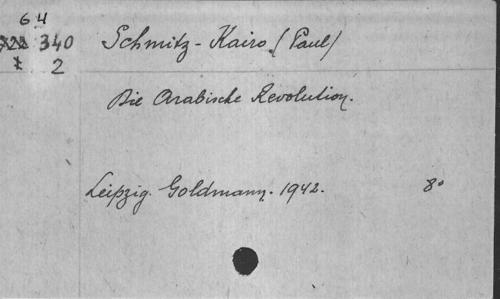 64
340 Schmitz-Kairo (Paul)
2
Die Arabische Revolution.
Leipzig. Goldmann. 1942. 8°